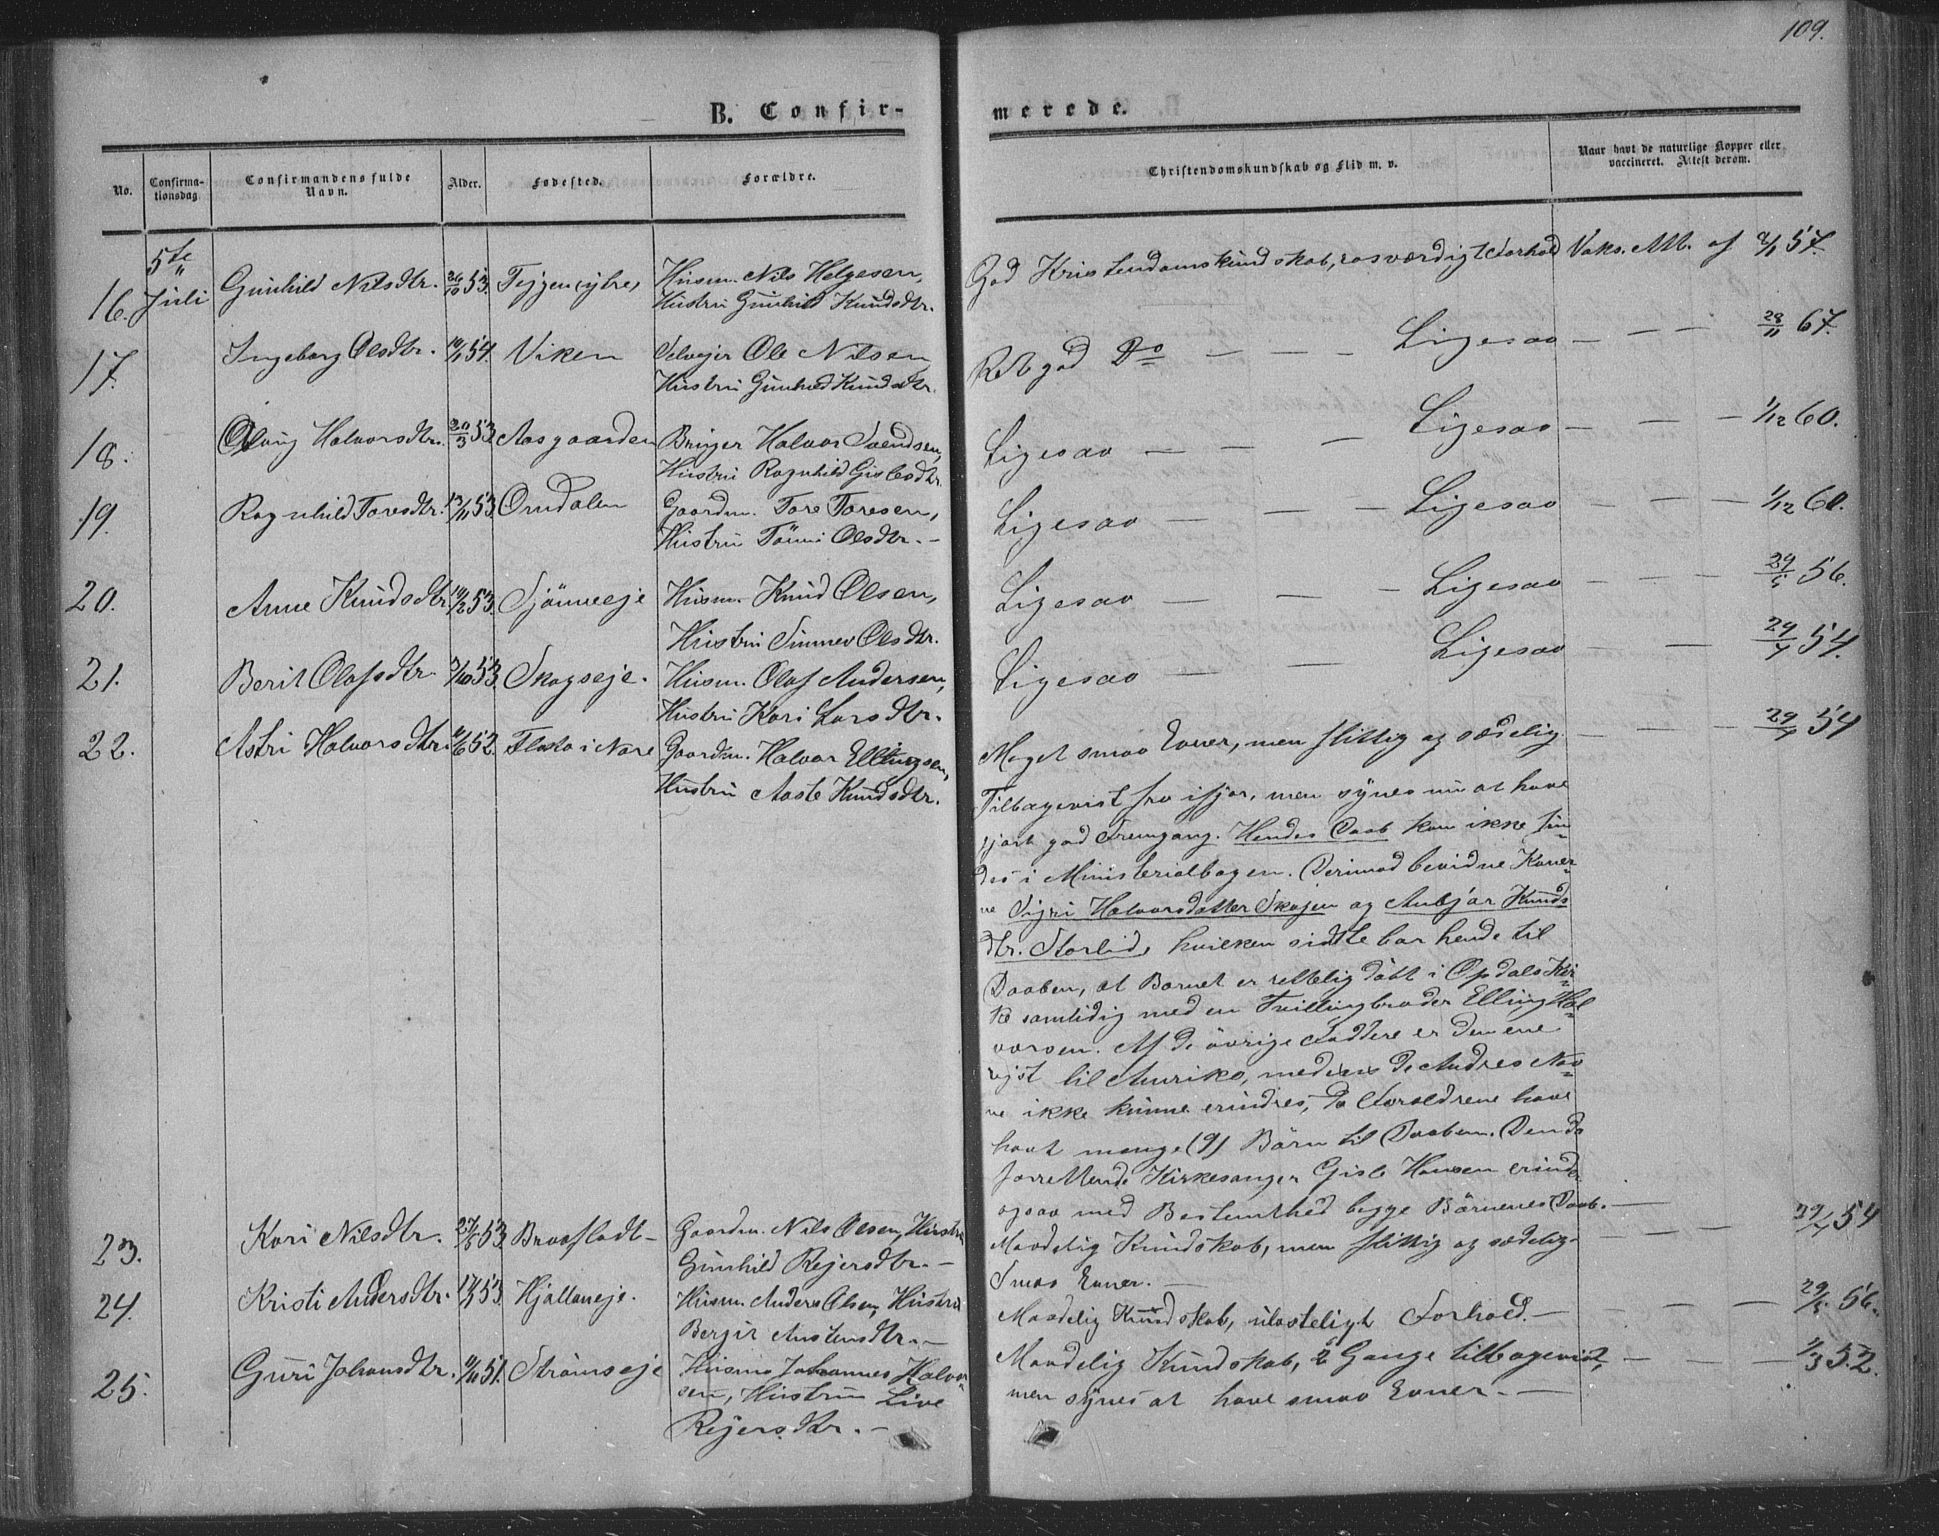 109.
B. Confir-
merede.
No.
Confirma-
tionsdag
Confirmandens fulde
Navn.
Alder.
Fødested.
Forældre.
Christendomskundskab og Flid m. v.
Naar havt de naturlige Kopper eller
vaccineret. Attest derom.
5te
16. Juli Gunhild Nilsdtr. 26/10 53. Husm. Nils Helgesen,
Hustru Gunhild Knudsdtr.
God Kristendomskundskab, rosværdigt Forhold Vaks. Att. af 57.
17. Ingeborg Olsdtr. 54. Viken Selvejer Ole Nilsen
Hustru Gunhild Knudsdtr.
Ret god Do — — — Ligesaa — — — 28/11 67.
18. Olaug Halvorsdtr. 20/3 53. Aasgaarden Halvor Svendsen,
Hustru Ragnhild Gislesdtr.
Ligesaa — — — Ligesaa — — — 1/12 60.
19. Ragnhild Toresdtr. 13/11 53. Ørndalen Gaardm. Tore Toresen,
Hustru Tönni Olsdtr. —
Ligesaa — — — Ligesaa — — — 1/12 60.
20. Anne Knudsdtr. 10/12 53. Sjönneeje Husm. Knud Olsen,
Hustru Sinnev Olsdtr.
Ligesaa — — — Ligesaa — — — 29/5 56.
21. Berit Olafsdtr. 53. Skogseje. Husm. Olaf Andersen,
Hustru Kari Larsdtr.
Ligesaa — — Ligesaa — — 29/4 54.
22. Astri Halvorsdtr. 52. Flaata i Nore Gaardm. Halvor Ellingsen,
Hustru Aaste Knudsdtr.
Meget smaa Evner, men flittig og sædelig. — — — 29/4 54
Tilbagevist fra ifjor, men synes nu at have
gjort god Fremgang. Hendes Daab kan ikke fin-
des i Ministerialbogen. Derimod bevidne Koner-
ne Sigri Halvorsdatter Skojen og Anbjør Knuds
dtr. Storlid, hvilken sidste bar hende til
Daaben, at Barnet er rettelig döbt i Opdals Kir-
ke samtidig med en Tvillingbroder Elling Hal-
vorsen. Af de övrige Faddere er den ene
rejst til Amerika, medens de Andres Nav-
ne ikke kunne erindres, da Forældrene have
havt mange (9) Börn til Daaben. Den da
forrettende Kirkesanger Gisle Hansen erindrer
ogsaa med Bestemthed begge Börnenes Daab. —
23. Kari Nilsdtr. 27/5 53. Braafladt — Gaardm. Nils Olsen, Hustru
Gunhild Rejersdtr. —
Maadelig Kundskab, men flittig og sædelig — — — 29/4 54
Smaa Evner. —
24. Kristi Andersdtr. 53. Hjalleneje. Husm. Anders Olsen, Hustru
Bergit Austensdtr. —
Maadelig Kundskab, ulasteligt Forhold. — — — — 29/5 56.
25. Guri Johansdtr. 51. Strömseje Husm. Johannes Halvor-
sen, Hustru Live
Rejersdtr. —
Maadelig Kundskab, 2 Gange tilbagevist, — — — 1/3 52.
men synes at have smaa Evner. —